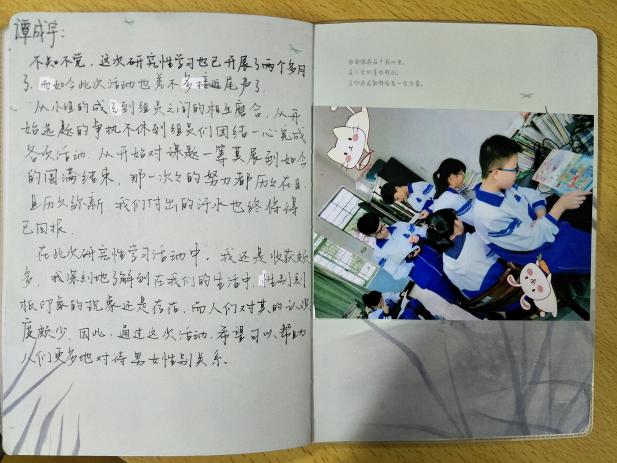 谭成宇:
不知不觉,这次研究性学习也已开展了两个多月
了,而如今此次活动也差不多接近尾声了.
从小组的成立到组员之间的相互磨合,从开
始选题的争执不休到组员们团结一心完成
各次活动.从开始对课题一筹莫展到如今
的圆满结束,那一次次的努力都历历在目,
且历久弥新.我们付出的汗水也终将得
已回报.
在此次研究性学习活动中,我还是收获颇
多,我深刻地了解到在我们的生活中,性别刻
板印象的现象还是存在,而人们对其的认识
度颇少.因此,通过这次活动,希望可以帮助
人们更多地对待男女性别关系.